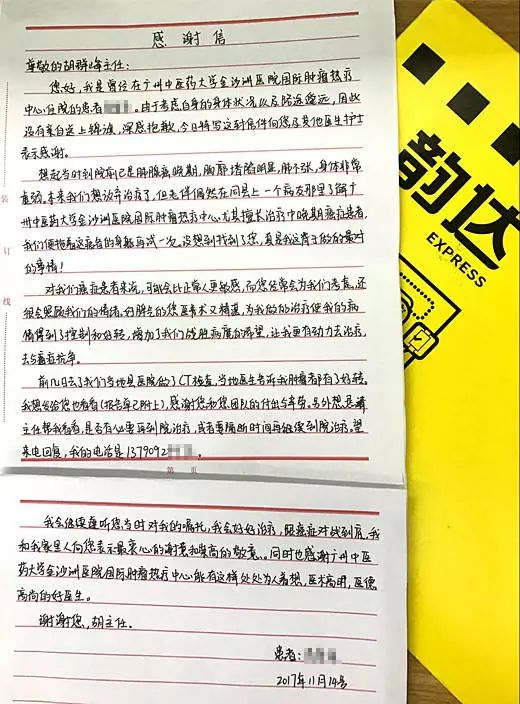 感谢信
尊敬的胡群峰主任:
您好,我是曾经在广州中医药大学金沙洲医院国际肿瘤热疗
中心住院的患者 。由于考虑自身的身体状况以及路途遥远,因此
没有亲自送上锦旗,深感抱歉,今日特写这封信件向您及其他医生护士
表示感谢。
想起当时到院前已是肺腺癌晚期,胸廓塌陷明显,肺不张,身体非常
虚弱。本来我们想放弃治疗了,但老伴偶然在同县上一个病友那里了解广
州中医药大学金沙洲医院国际肿瘤热疗中心尤其擅长治疗中晚期癌症患者,
我们便抱着这疲惫的身躯再试一次。没想到找到了您,真是我这辈子做的最对
的事情!
对我们癌症患者来说,可能会比正常人更敏感,而您经常会为我们考虑,还
很会照顾我们的情绪,妇肺主的您医术又精湛,为我做的治疗使我的病
情得到了控制和好转,增加了我们战胜病魔的希望,让我更有动力去治疗,
去与癌症抗争。
前几日去了我们当地县医院做了CT检查,当地医生告诉我肿瘤都有了好转。
我想发给您也看看(报告单已附上),感谢您和您团队的付出与辛劳。另外想急请
主任帮我看看,是否有必要再到院治疗,或者要隔断时间再继续到院治疗。望
来电回复,我的电话是1379092 。
第 页
我会继续遵听您当时对我的嘱托,我会好好治疗,跟癌症对战到底。我
和我家里人向您表示最衷心的谢意和崇高的敬意。同时也感谢广州中医
药大学金沙洲医院国际肿瘤热疗中心能有这样处处为人着想,医术高明,医德
高尚的好医生。
谢谢您,胡主任。
患者:
2017年11月14号
装
订
线
韵达
EXPRESS